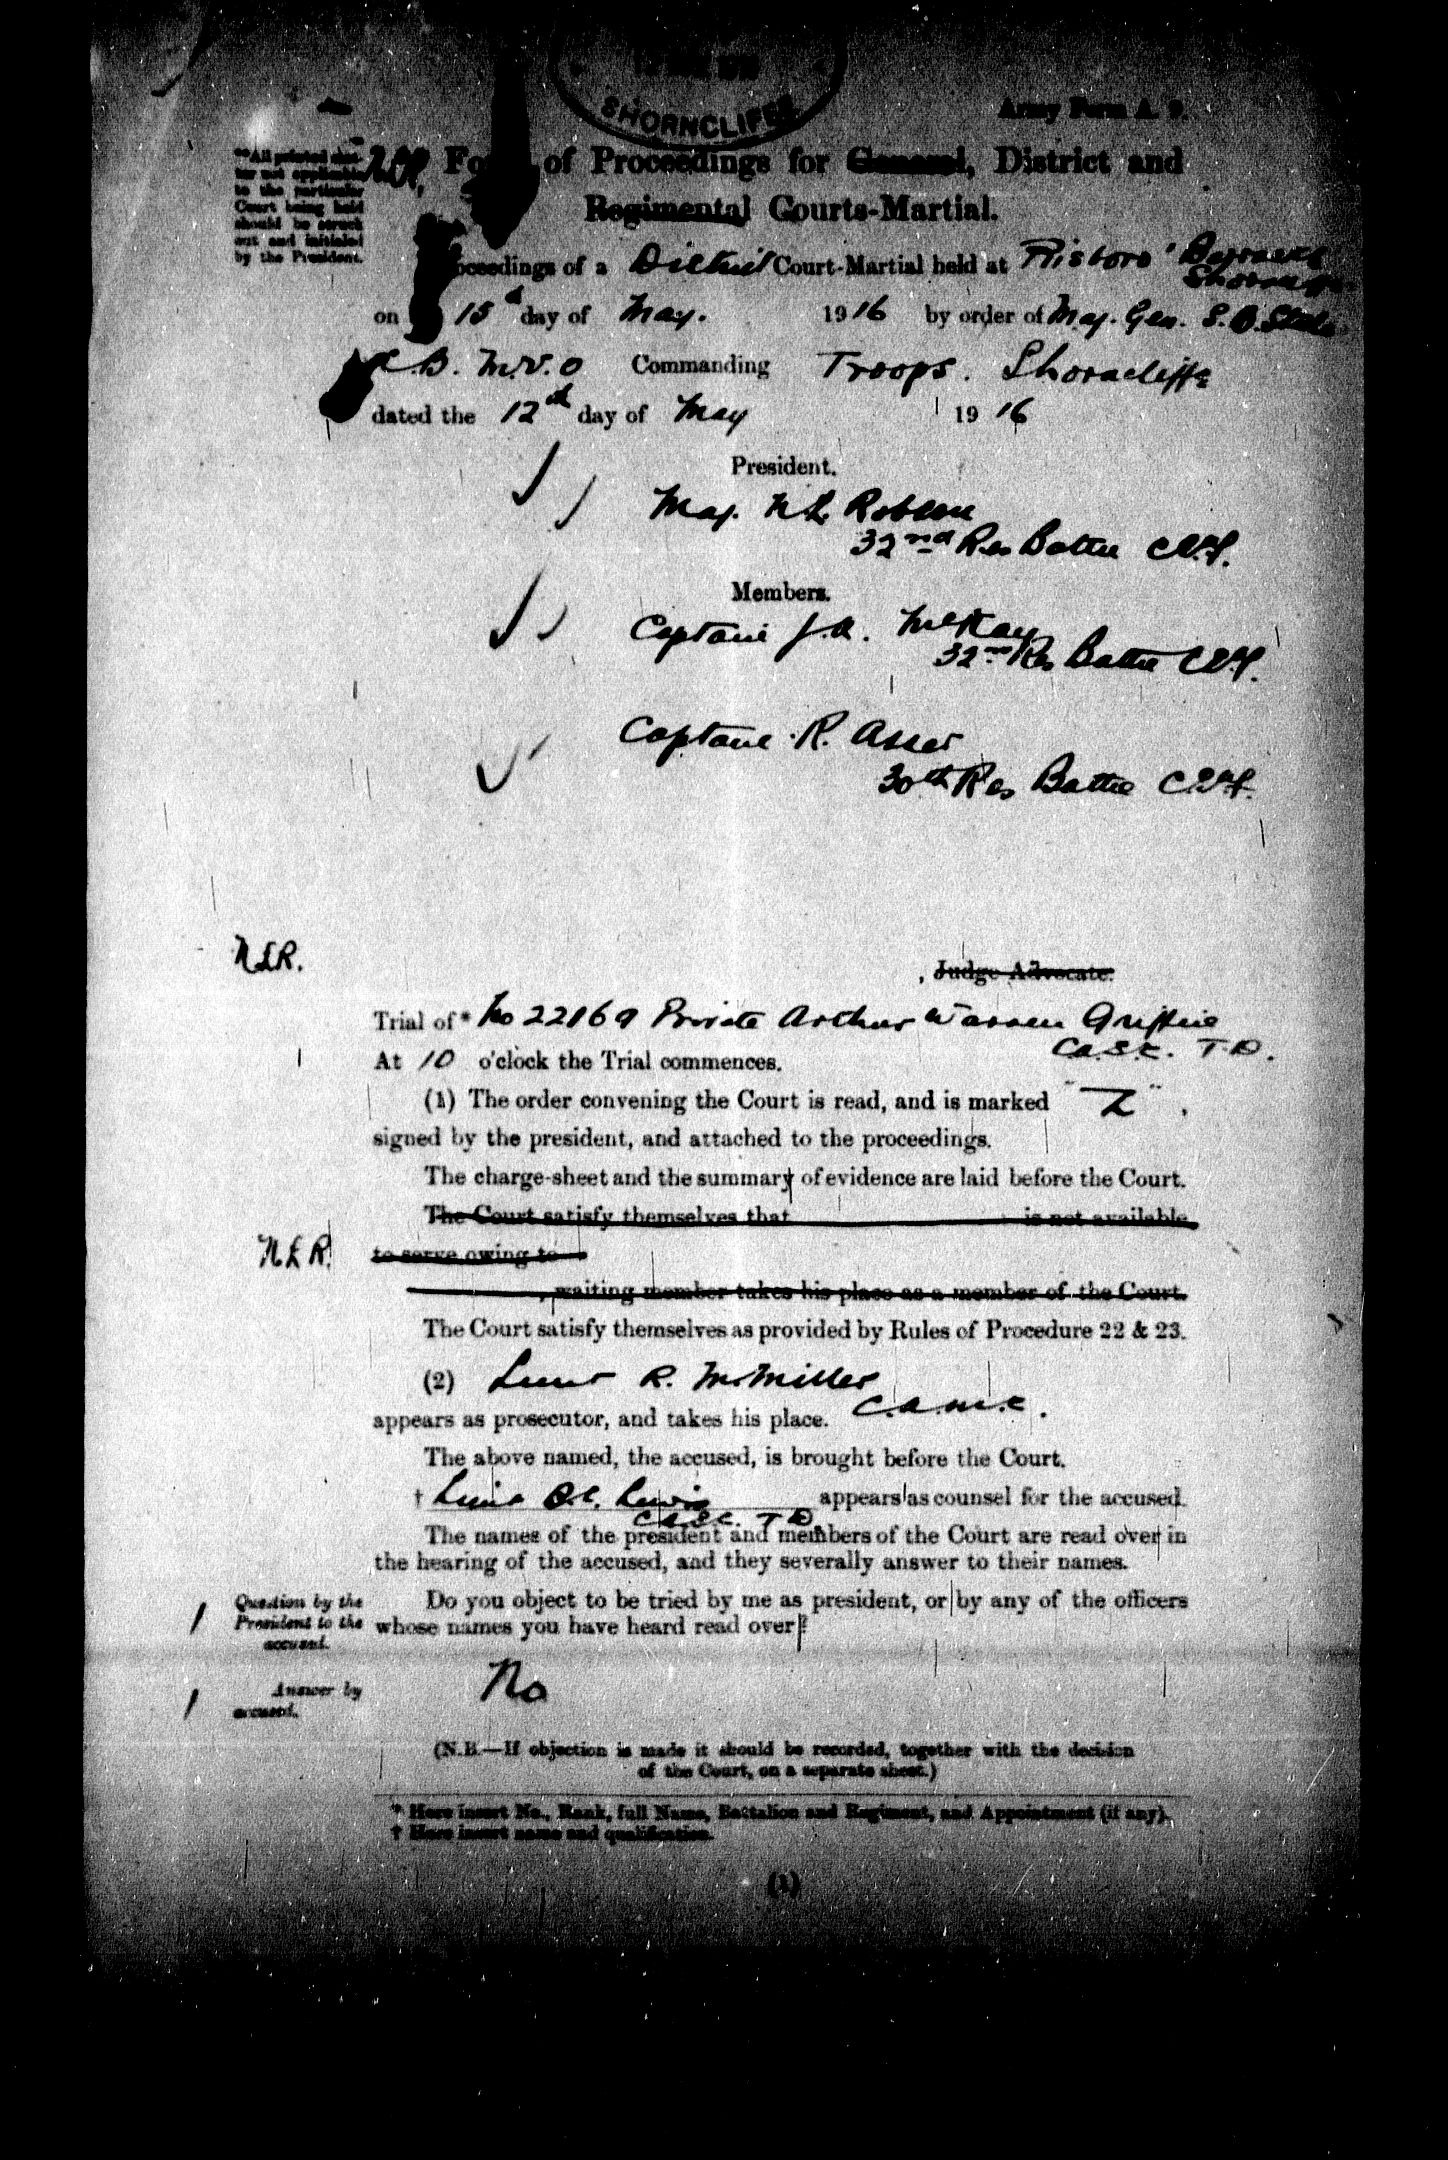 SHORNCLIFFE
Army Form A. 9.
**All printed matter not applicable
to the particular
Court being held
should be struck
out and initialed
by the President.
Fo of Proceedings for General, District and
Regimental Courts-Martial.
oceedings of a District Court-Martial held at Risboro' Barracks
on 15 day of May. 1916 by order of Maj. Gen. S. B. Steele
C.B. M.V.O Commanding Troops. Shorncliffe
dated the 12th day of May 1916
President.
Maj. N. L. Robson
32nd Res Battn C.E.F.
Members.
Captain J. A. McKay
32nd Res Battn C.E.F.
Captain R. Asser
30th Res Battn C.E.F.
N.L.R.
, Judge Advocate.
Trial of* No 22169 Private Arthur Warren Griffin
C.A.S.C. T.D.
At 10 o'clock the Trial commences.
(1) The order convening the Court is read, and is marked "Z",
signed by the president, and attached to the proceedings.
The charge-sheet and the summary of evidence are laid before the Court.
The Court satisfy themselves that is not available
N.L.R. to serve owing to
, waiting member takes his place as a member of the Court.
The Court satisfy themselves as provided by Rules of Procedure 22 & 23.
(2) Lieut R. McMiller
C.A.M.C.
appears as prosecutor, and takes his place.
The above named, the accused, is brought before the Court.
† Lieut Lewis appears as counsel for the accused.
C.A.S.C. T.D.
The names of the president and members of the Court are read over in
the hearing of the accused, and they severally answer to their names.
Question by the
President to the
accused.
Do you object to be tried by me as president, or by any of the officers
whose names you have heard read over?
Answer by
accused.
No
(N.B.—If objection is made it should be recorded, together with the decision
of the Court, on a separate sheet.)
* Here insert No., Rank, full Name, Battalion and Regiment, and Appointment (if any).
† Here insert name and qualification.
(1)